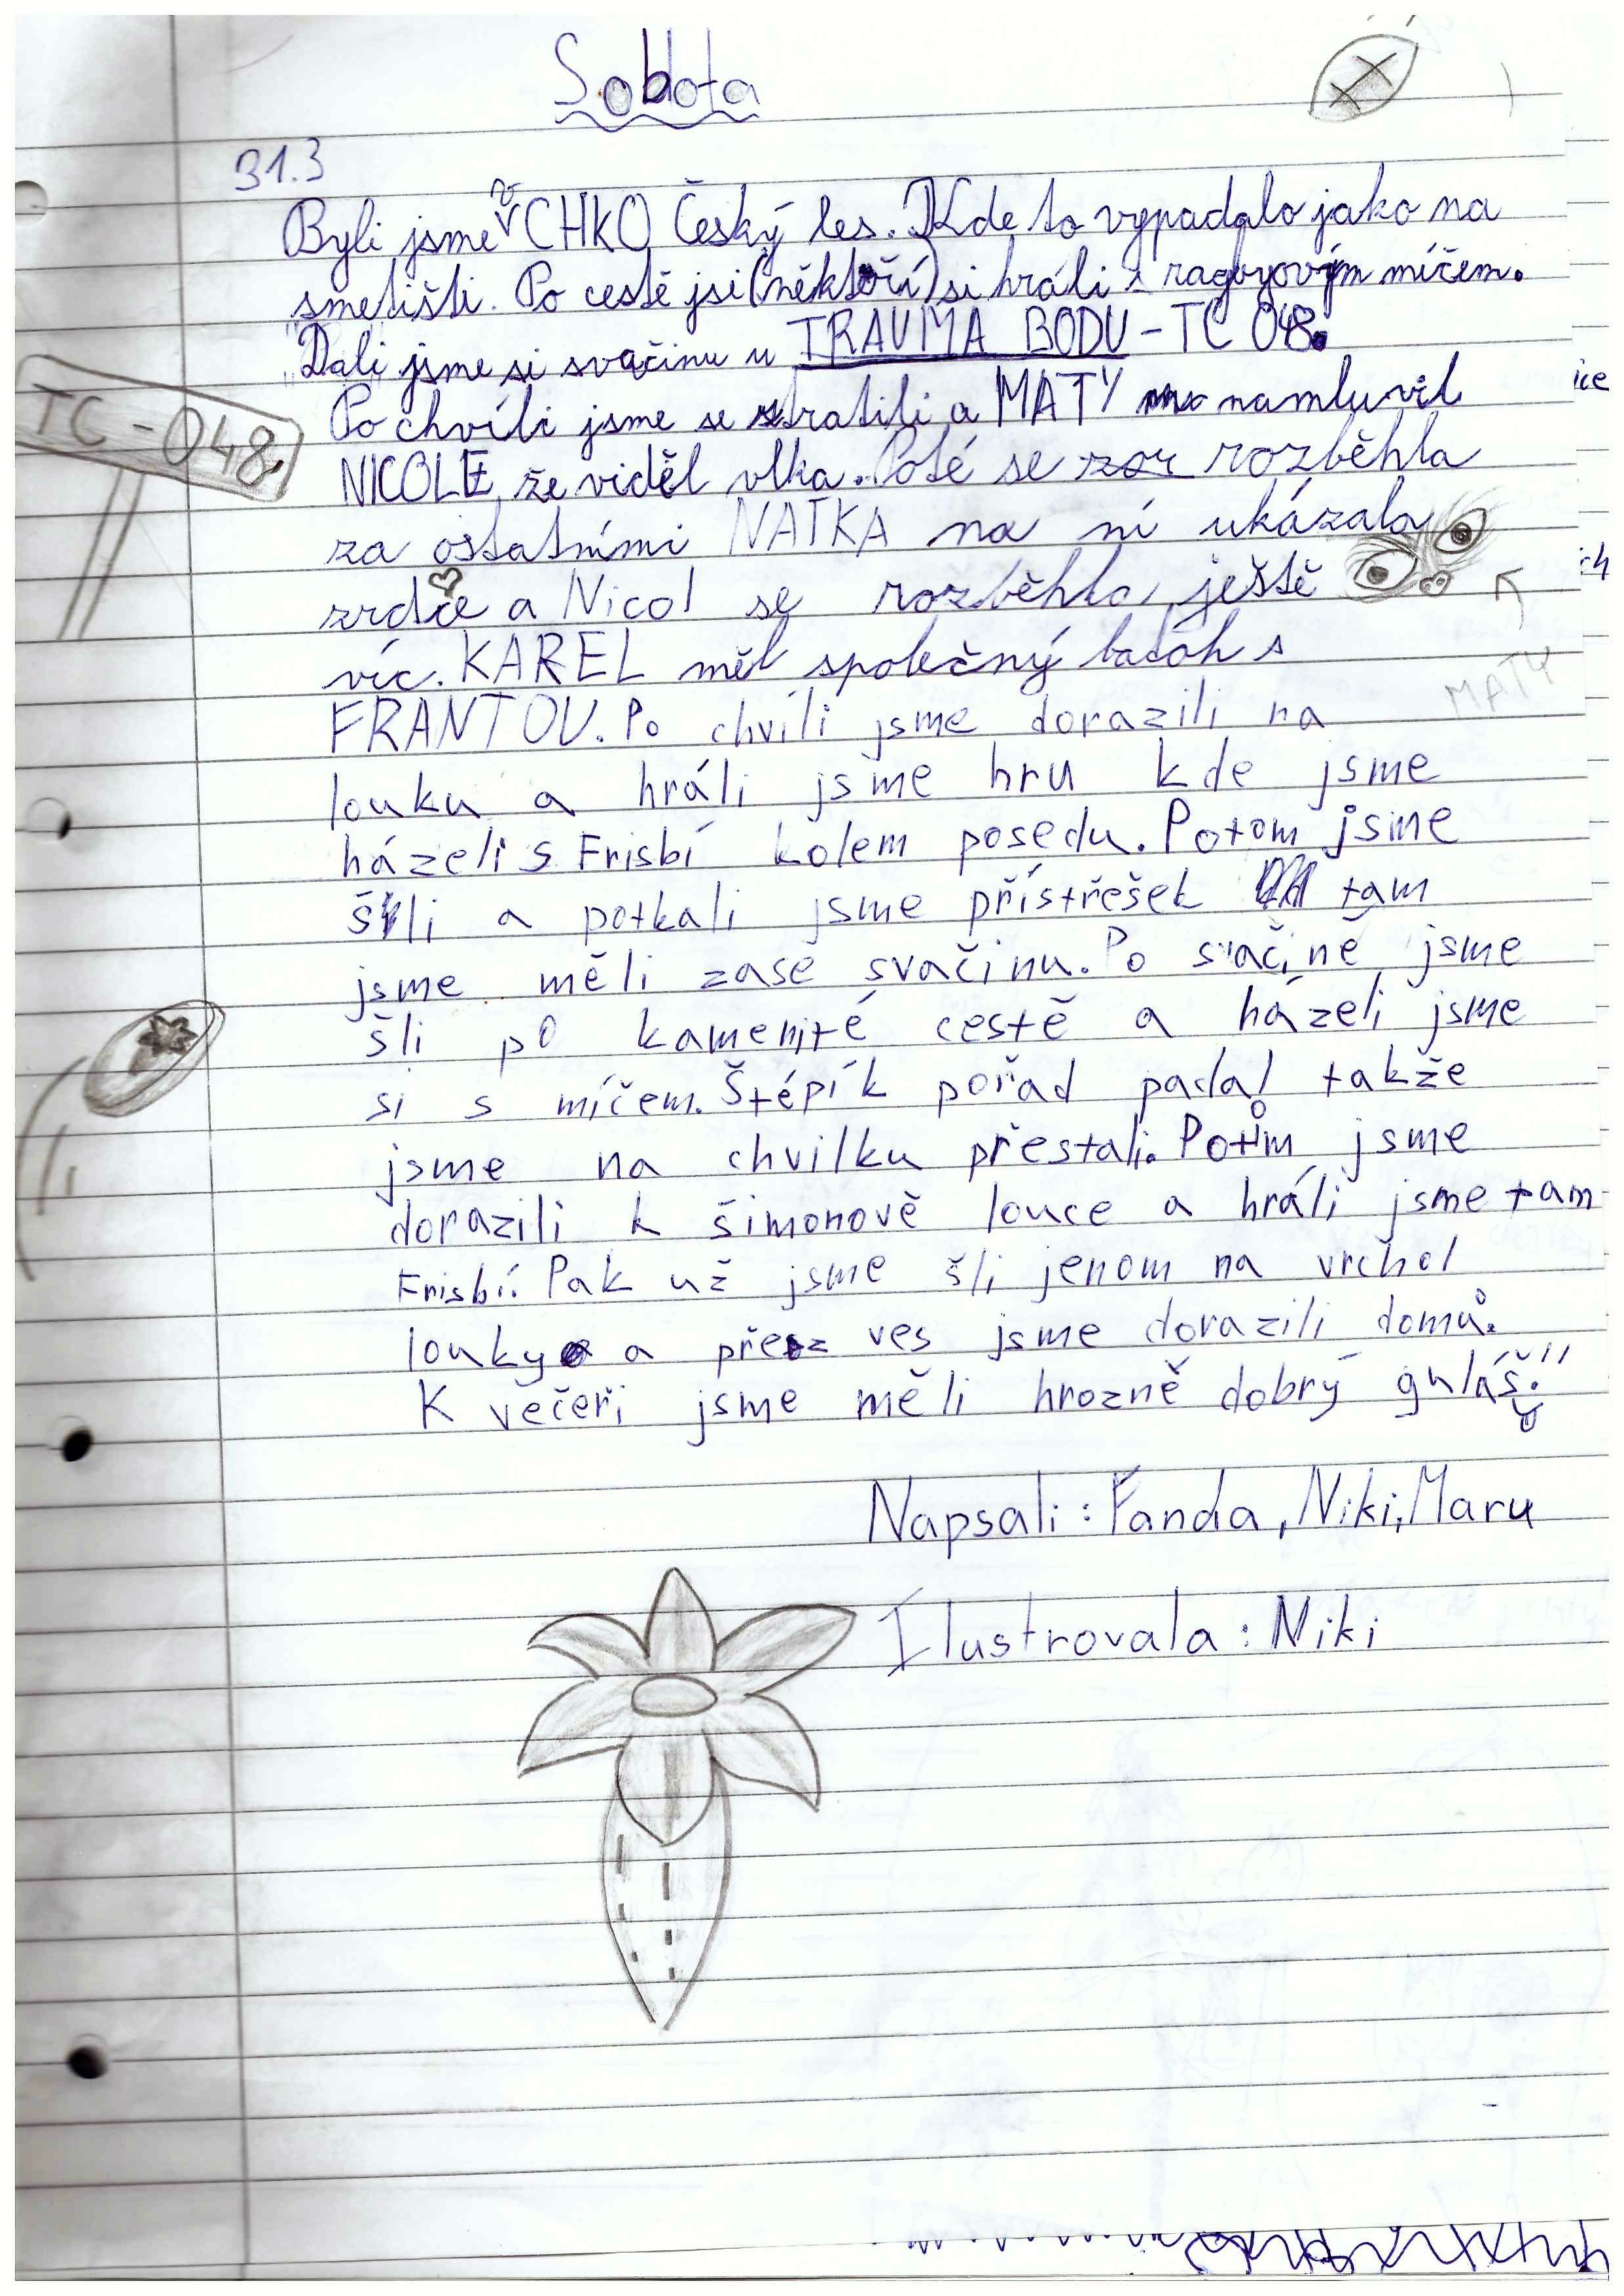 Sobota
31.3
Byli jsme v CHKO Český les. Kde to vypadalo jako na
smetišti. Po cestě jsi (někteří) si hráli s ragbyovým míčem.
Dali jsme si svačinu u TRAUMA BODU - TC 048.
Po chvíli jsme se stratili a MATY namluvil
TC - 048.
NICOLE, že viděl vlka. Poté se rozběhla
za ostatními NATKA na ní ukázala
zrdce a Nicol se rozběhla ještě
víc. KAREL měl společný batoh s
MATY
FRANTOU. Po chvíli jsme dorazili na
louku a hráli jsme hru kde jsme
házeli s Frisbí kolem posedu. Potom jsme
šli a potkali jsme přístřešek tam
jsme měli zase svačinu. Po svačině jsme
šli po kamenité cestě a házeli jsme
si s míčem. Štěpík pořád padal takže
jsme na chvilku přestali. Potům jsme
dorazili k šimonově louce a hráli jsme tam
Frisbí. Pak už jsme šli jenom na vrchol
louky a přez ves jsme dorazili domů.
K večeři jsme měli hrozně dobrý guláš!
Napsali: Fanda, Niki, Maru
Ilustrovala: Niki